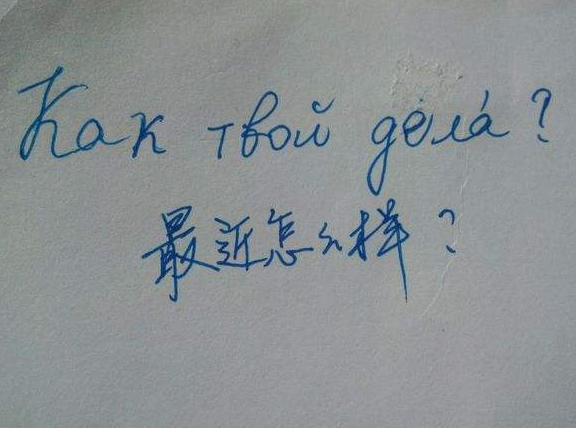 Как твой дела́?
最近怎么样？